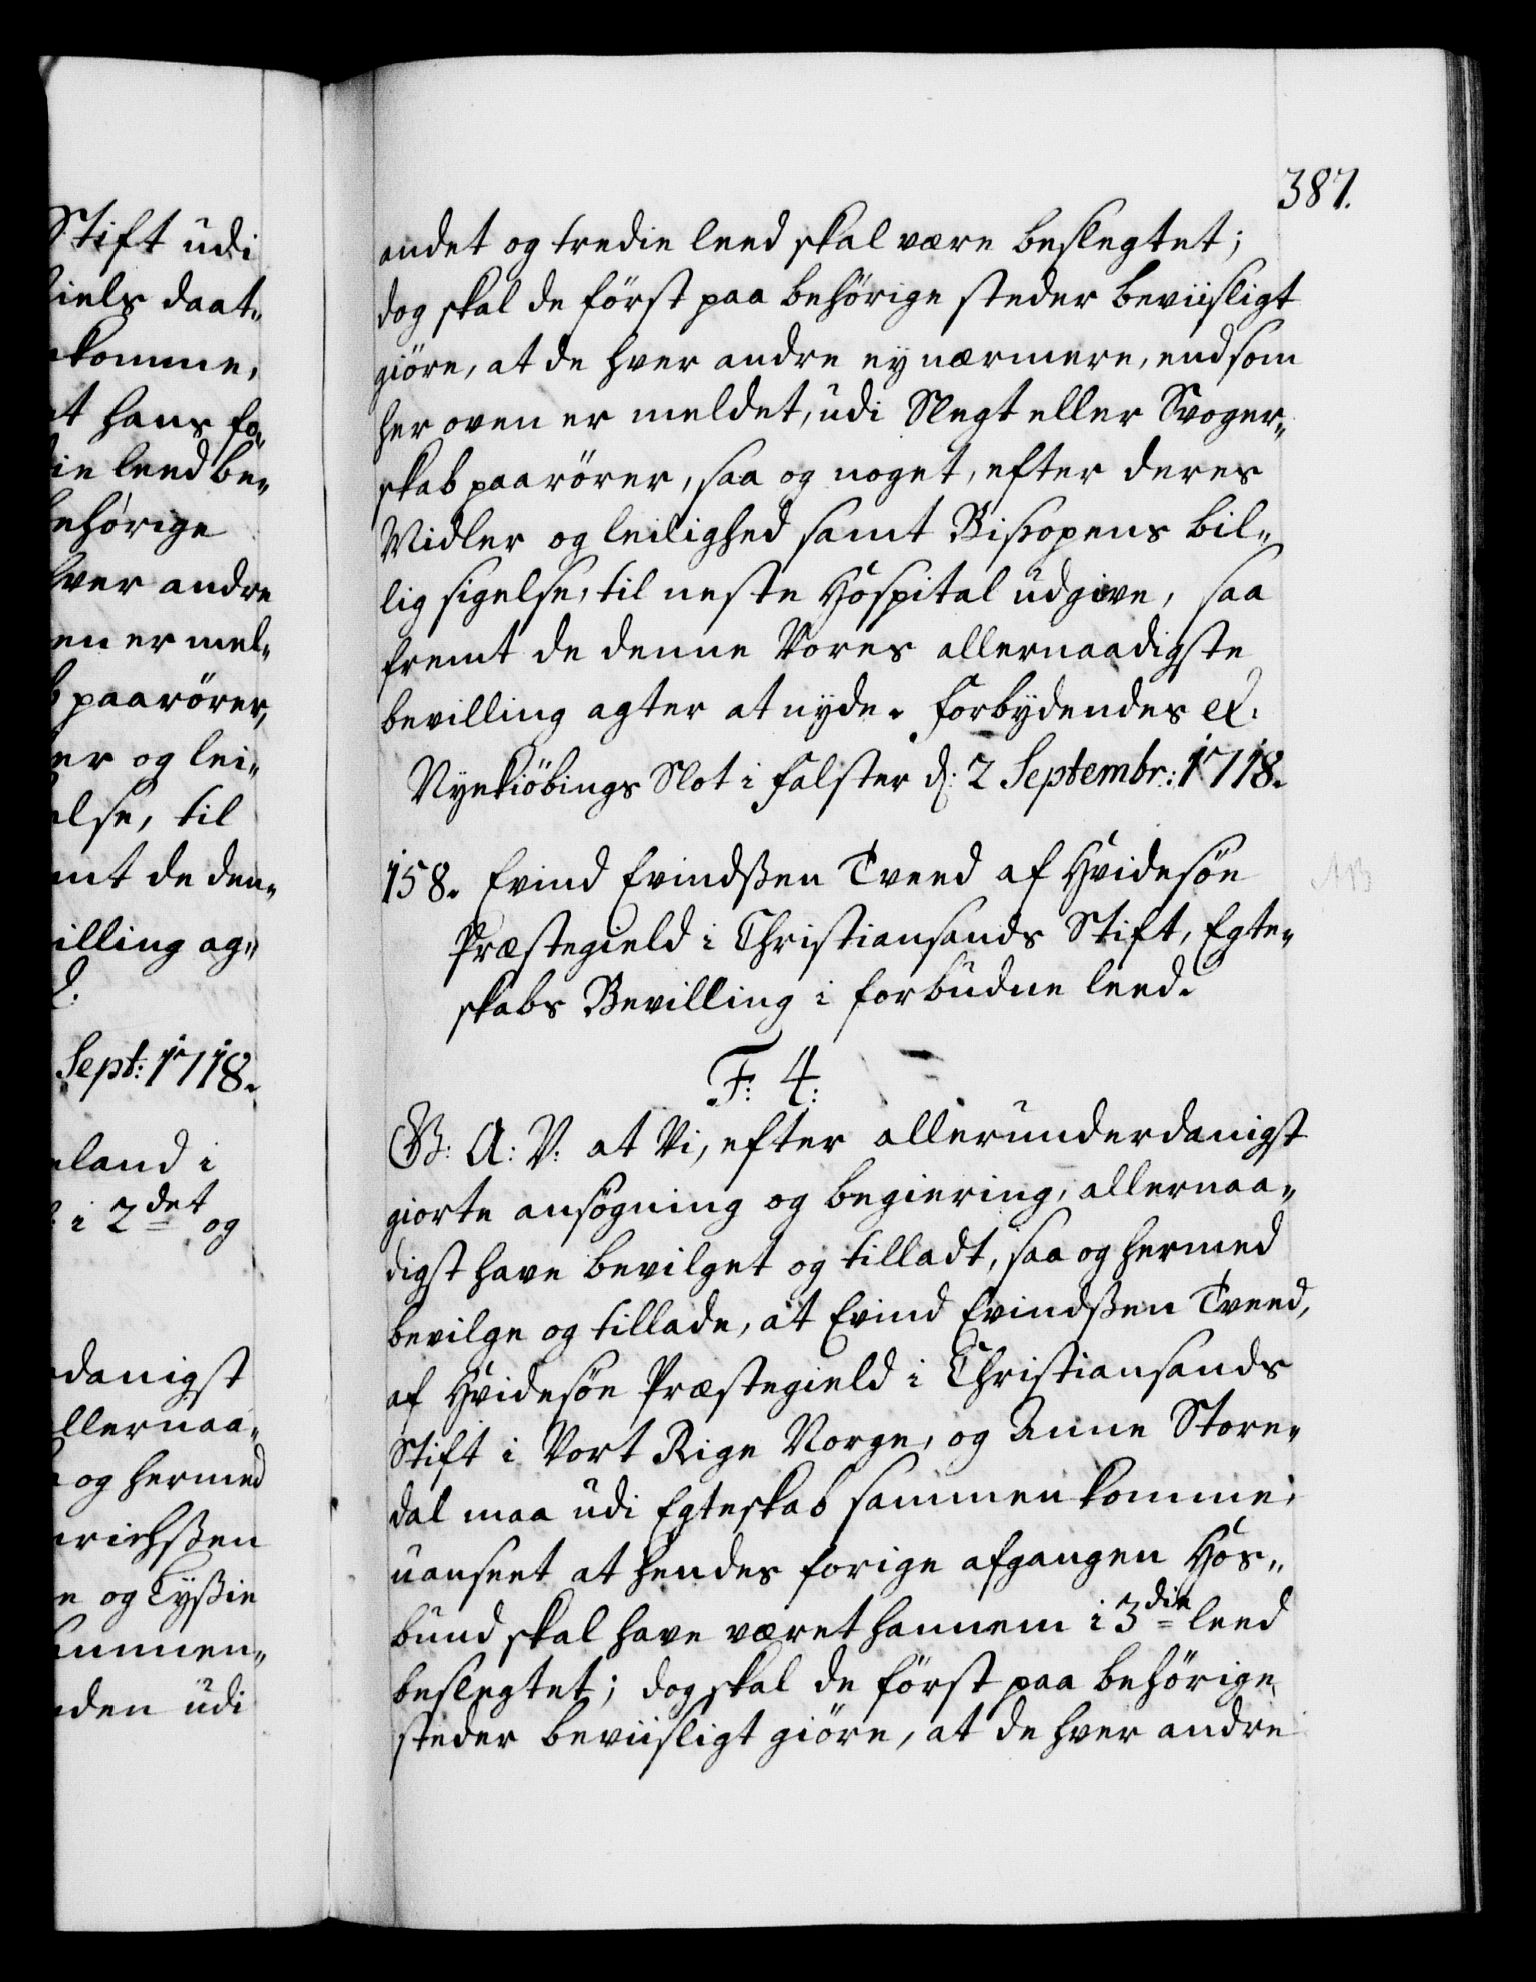 Stift udi
iels daat„
komme,
t hans fo„
ie leed be„
ehörige
hver andre
en er mel„
b paarörer,
er og lei„
else, til
mt de den„
villing ag„
Sept: 1718.
land i
i 2det og
danigst
llernaa„
og hermed
richsßen
e og Tyßie
ammen„
den udi
387.
andet og tredie leed skal være beslegtet;
dog skal de först paa behörige steder beviisligt
giöre, at de hver andre ey nærmere, end som
her oven er meldet, udi Slegt eller Svoger„
skab paarörer, saa og noget, efter deres
Midler og leilighed samt Bispens bil„
lig sigelse, til neste Hospital udgive, saa
fremt de denne Vores allernaadigste
bevilling agter at nyde. Forbydendes etc:
Nyekiöbings Slot i Falster d: 2 Septembr: 1718.
158. Evind Evindsßen Tveed af Hvidesöe
Præstegield i Christiansands Stift, Egte„
skabs Bevilling i forbudne leed.
F: 4:
G: A: V: at Vi, efter allerunderdanigst
giorte ansögning og begiering, allernaa„
digst have bevilget og tilladt, saa og hermed
bevilge og tillade, at Evind Evindsßen Tveed,
af Hvidesöe Præstegield i Christiansands
Stift i Vort Rige Norge, og Anne Store„
dal maa udi Egteskab sammenkomme,
uanseet at hendes forige afgangen Hos„
bund skal have været hannem i 3die leed
beslegtet; dog skal de först paa behörige
steder beviisligt giöre, at de hver andre